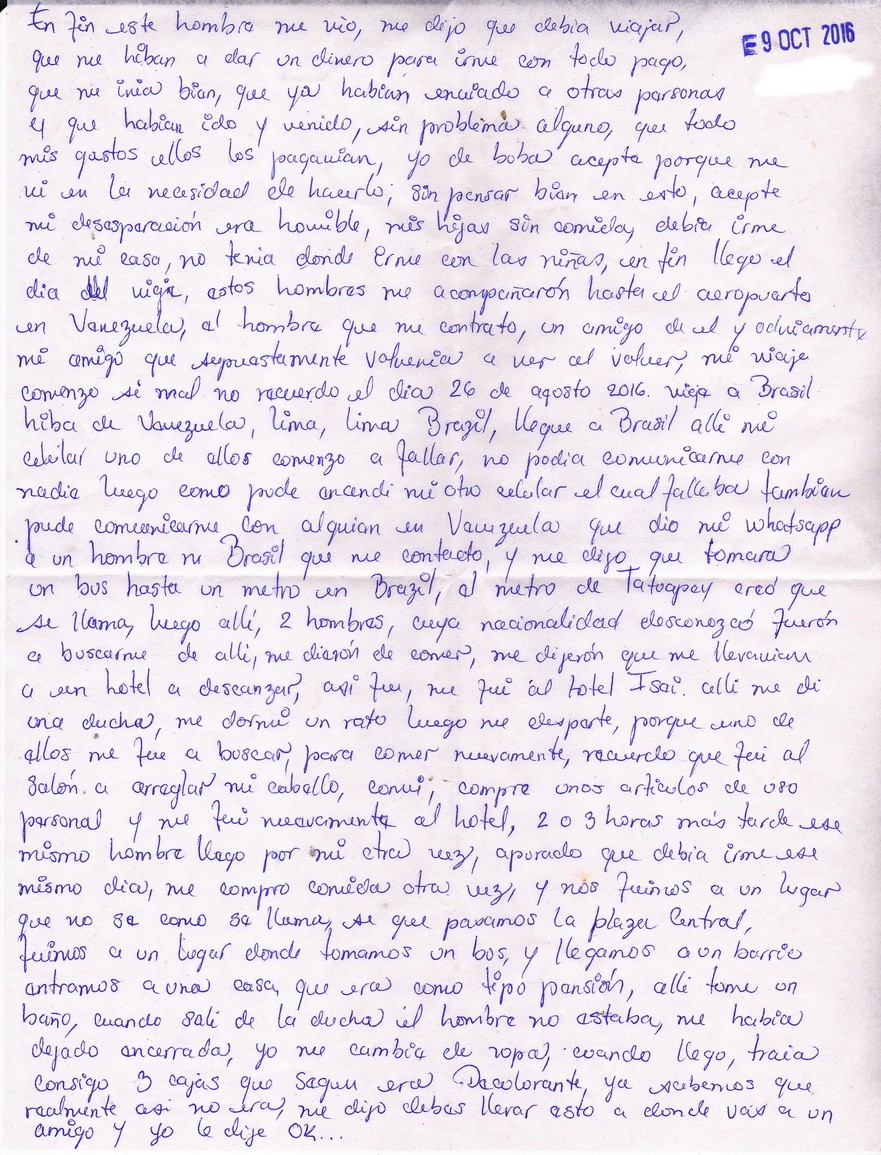 En fin este hombre me vio, me dijo que debia viajar,
E 9 OCT 2016
que me hiban a dar un dinero para irme con todo pago,
que me iria bien, que ya habian enviado a otras personas
y que habian ido y venido, sin problema alguno, que todo
mis gastos ellos los pagarian, yo de boba acepte porque me
vi en la necesidad de hacerlo, sin pensar bien en esto, acepte
mi desesperación era horrible, mis hijas sin comida, debia irme
de mi casa, no tenia donde irme con las niñas, en fin llego el
dia del viaje, estos hombres me acompañarón hasta el aeropuerto
en Venezuela, el hombre que me contrato, un amigo de el y obviamente
mi amigo que supuestamente volveria a ver al volver, mi viaje
comenzo si mal no recuerdo el dia 26 de agosto 2016. viaje a Brasil
hiba de Venezuela, lima, lima Brazil, llegue a Brasil alli mi
celular uno de ellos comenzo a fallar, no podia comunicarme con
nadie luego como pude encendi mi otro celular el cual fallaba tambien
pude comunicarme con alguien en Venezuela que dio mi whatsapp
a un hombre en Brasil que me contacto, y me dijo que tomara
un bus hasta un metro en Brazil, el metro de Tatuapey creó que
se llama, luego alli, 2 hombres, cuya nacionalidad desconozcó fuerón
a buscarme de alli, me dierón de comer, me dijerón que me llevarian
a un hotel a descanzar, asi fue, me fui al hotel Isai. alli me di
una ducha, me dormi un rato luego me desperte, porque uno de
ellos me fue a buscar, para comer nuevamente, recuerdo que fui al
salón a arreglar mi cabello, comi, compre unos articulos de uso
personal y me fui nuevamente al hotel, 2 o 3 horas más tarde ese
mismo hombre llego por mi otra vez, apurado que debia irme ese
mismo dia, me compro comida otra vez, y nos fuimos a un lugar
que no se como se llama, se que pasamos la plaza Central,
fuimos a un lugar donde tomamos un bus, y llegamos a un barrio
entramos a una casa, que era como tipo pensión, alli tome un
baño, cuando sali de la ducha el hombre no estaba, me habia
dejado encerrada, yo me cambie de ropa, cuando llego, traia
consigo 3 cajas que segun era Decolorante, ya sabemos que
realmente asi no era, me dijo debes llevar esto a donde vas a un
amigo y yo le dije OK...